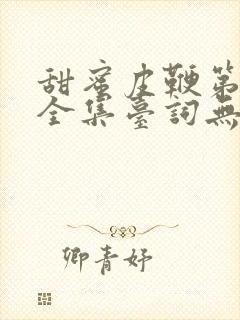 甜蜜皮鞭第
全集臺詞無
卿青妤